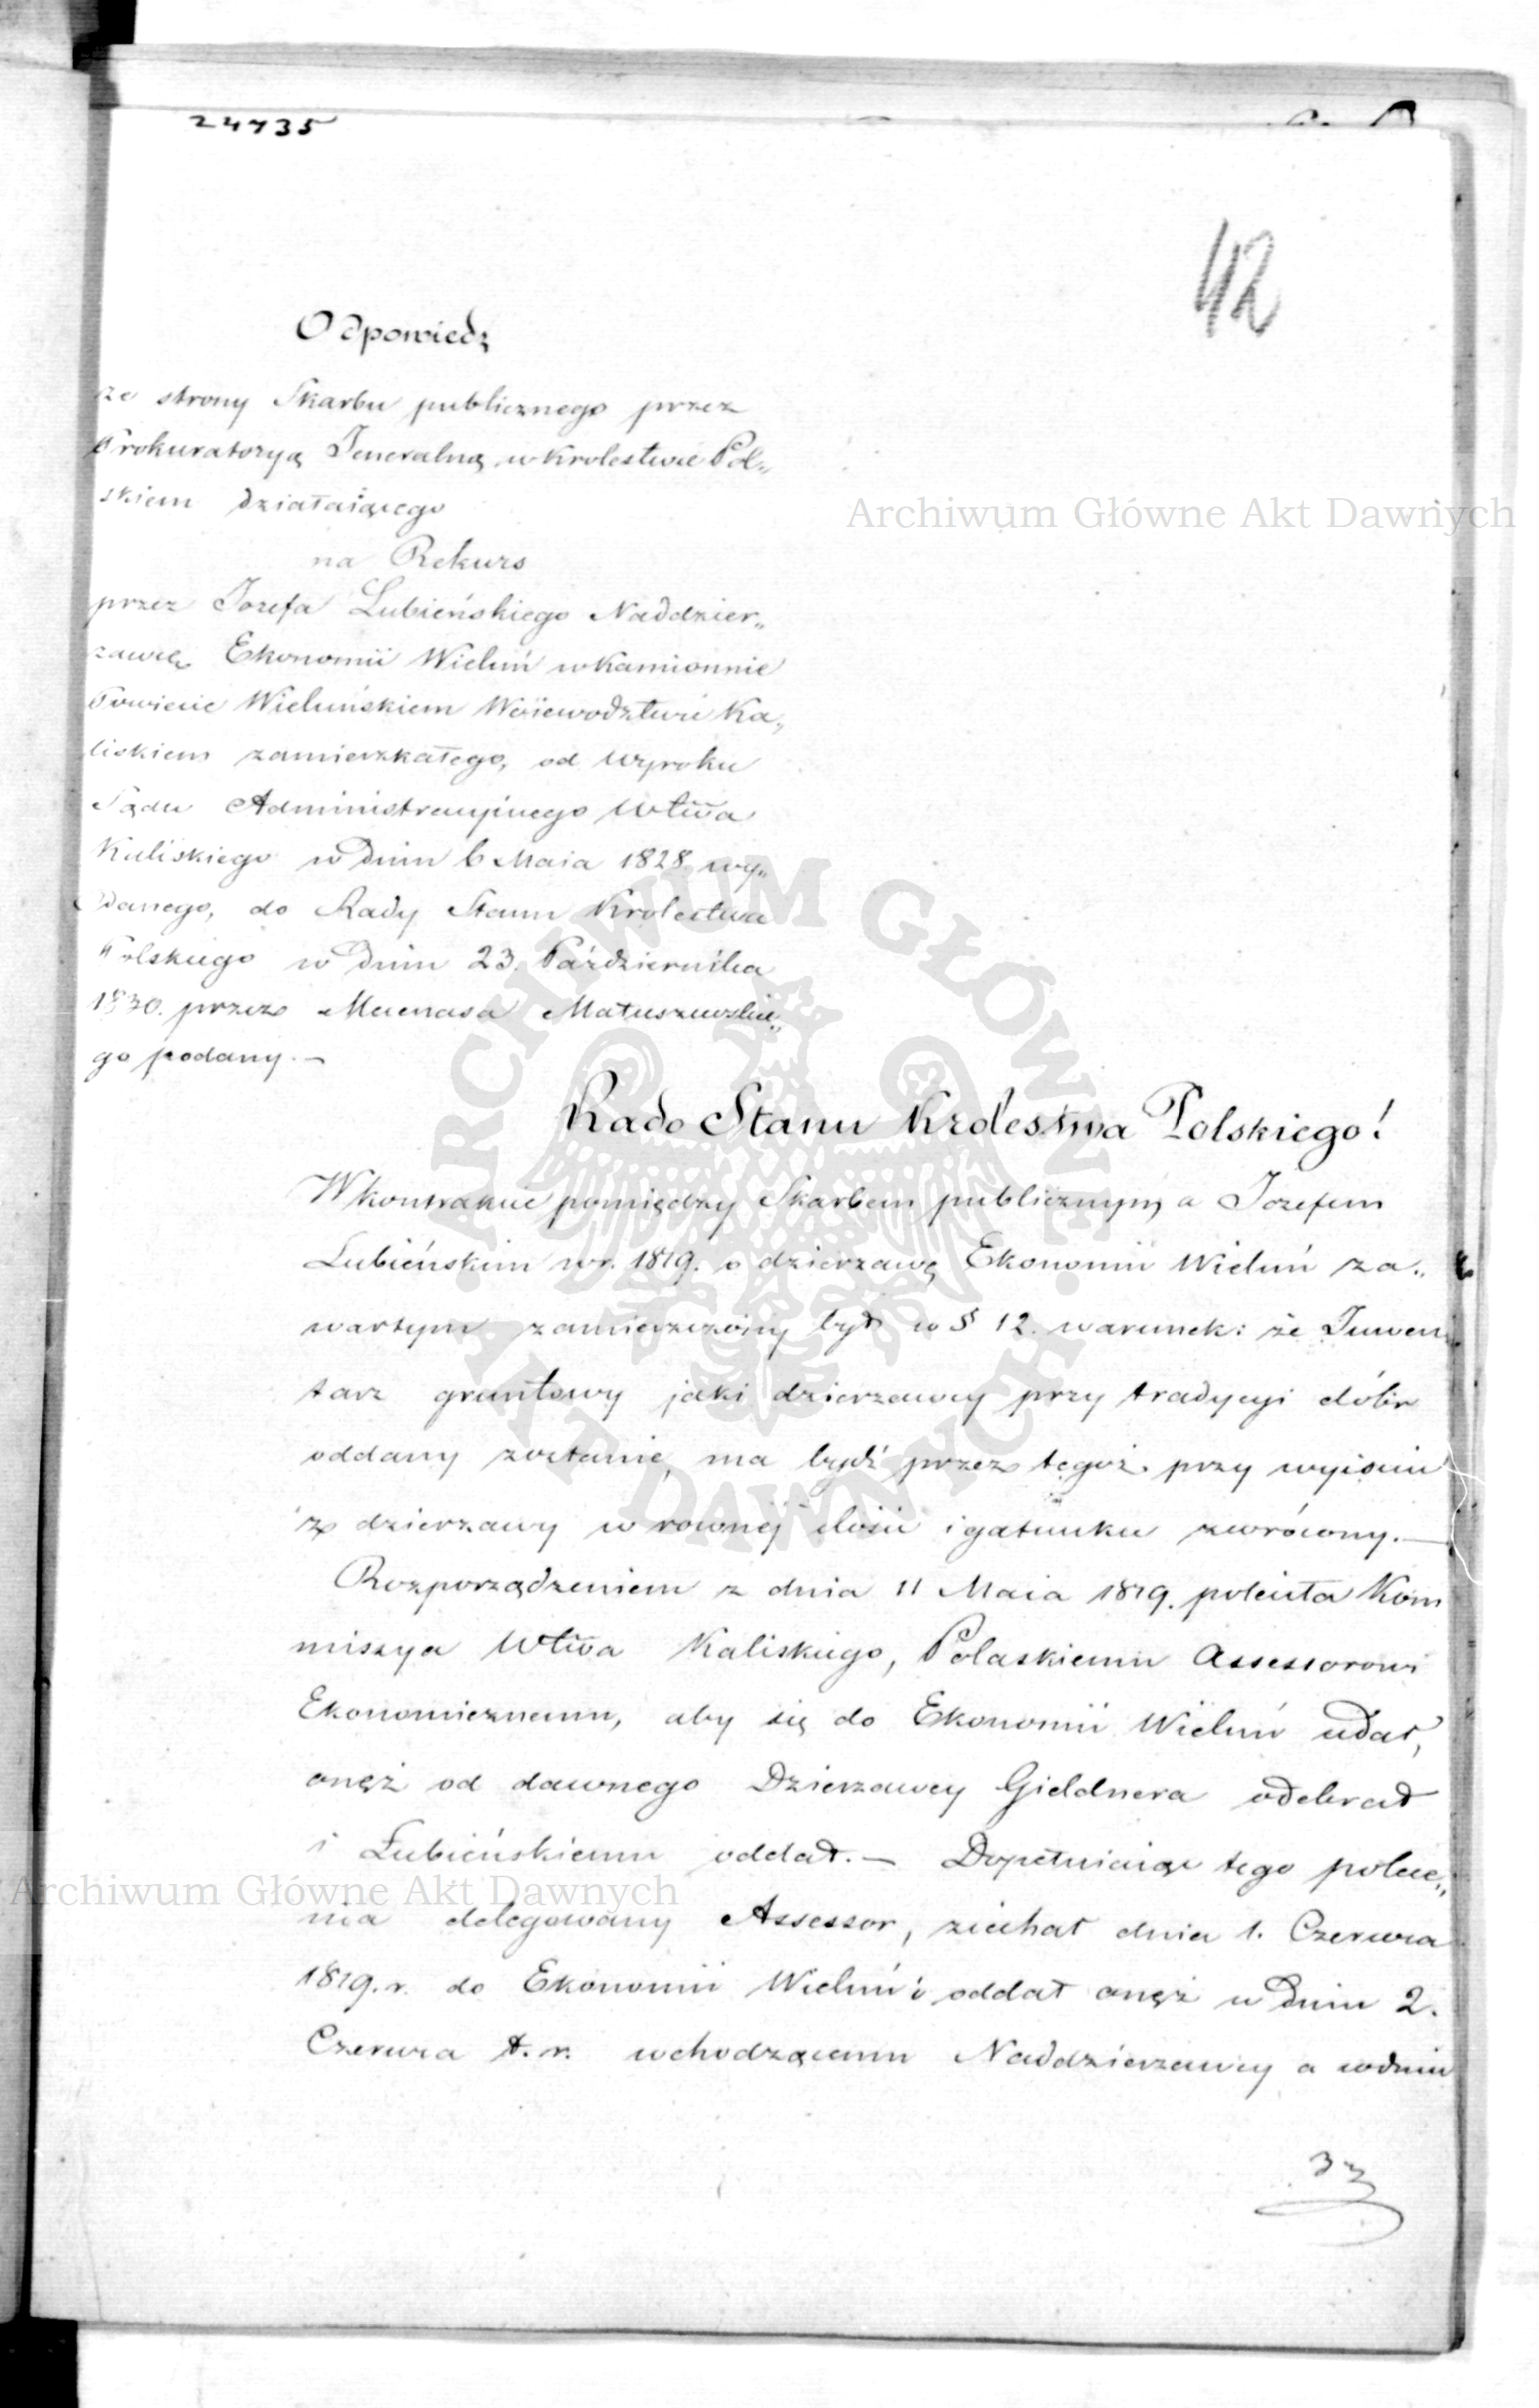 24735
42
Odpowiedz
ze strony Skarbu publicznego przez
Prokuratoryą Jeneralną w Krolestwie Pol„
skiem działaiącego
na Rekurs
przez Jozefa Lubieńskiego Naddzier„
zawcę Ekonomii Wieluń w Kamionnie
Powiecie Wieluńskiem Woiewodztwie Ka„
liskiem zamieszkałego, od wyroku
Sądu Administracyinego Wtwa
Kaliskiego w dniu 6 Maia 1828 wy„
danego, do Rady Stanu Krolestwa
Polskiego w dniu 23. Października
1830. przez Mecenasa Matuszewskie„
go podany. —
Rado Stanu Krolestwa Polskiego!
W kontrakcie pomiędzy Skarbem publicznym a Jozefem
Lubieńskim w r. 1819. o dzierzawę Ekonomii Wieluń za„
wartym zamieszczony był w § 12. warunek: że Inwen„
tarz gruntowy jaki dzierzawcy przy tradycyi dóbr
oddany zostanie, ma bydź przez tegoż przy wyiściu
z dzierzawy w rowney ilości i gatunku zwrócony. —
Rozporządzeniem z dnia 11 Maia 1819. poleciła Kom
missya Wtwa Kaliskiego, Polaskiemu Assessorowi
Ekonomicznemu, aby się do Ekonomii Wieluń udał,
onęż od dawnego Dzierzawcy Gieldnera odebrał
i Łubieńskiemu oddał. — Dopełniaiąc tego polece„
nia delegowany Assessor, ziechał dnia 1. Czerwca
1819. r. do Ekonomii Wieluń i oddał onęż w dniu 2.
Czerwca t. r. wchodzącemu Naddzierzawcy a w dniu
3
Archiwum Główne Akt Dawnych
Archiwum Główne Akt Dawnych
· ARCHIWUM GŁÓWNE ·
AKT DAWNYCH